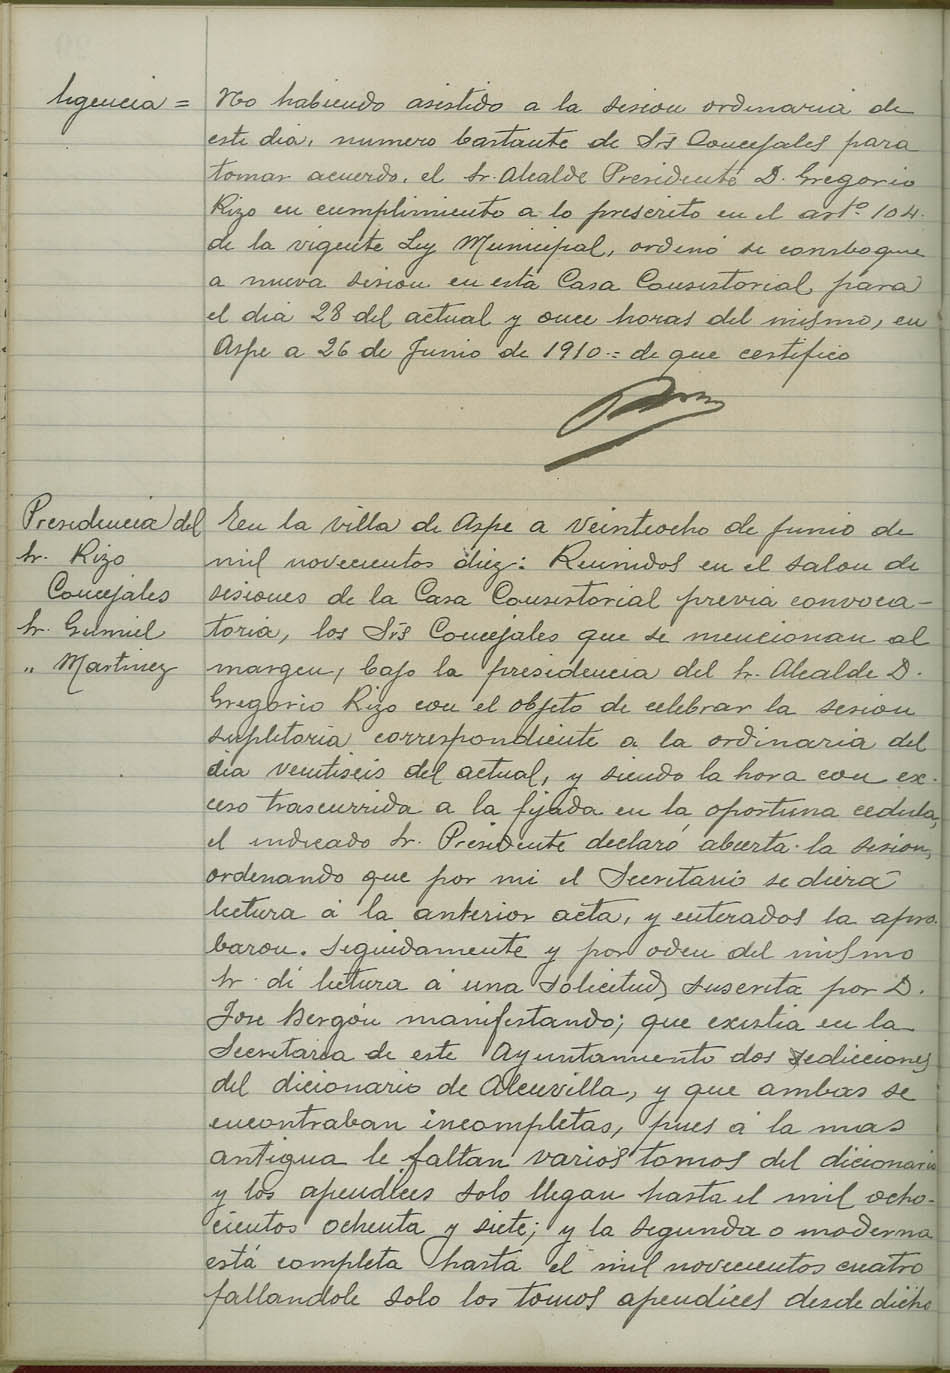 ligencia = No habiendo asistido a la sesion ordinaria de
este dia, numero bastante de Srs Concejales para
tomar acuerdo, el Sr. Alcalde Presidente D. Gregorio
Rizo en cumplimiento a lo prescrito en el artº 104.
de la vigente Ley Municipal, ordenó se consboque
a nueva sesion en esta Casa Consistorial, para
el dia 28 del actual y once horas del mismo, en
Aspe a 26 de Junio de 1910 = de que certifico
Presidencia del
Sr. Rizo
Concejales
Sr. Gumiel
" Martinez
En la villa de Aspe a veintiocho de Junio de
mil novecientos diez: Reunidos en el salon de
sesiones de la Casa Consistorial previa convoca-
toria, los Srs Concejales que se mencionan al
margen, bajo la presidencia del Sr. Alcalde D.
Gregorio Rizo con el objeto de celebrar la sesion
supletoria correspondiente a la ordinaria del
dia ventiseis del actual, y siendo la hora con ex-
ceso trascurrida a la fijada en la oportuna cedula,
el indicado Sr. Presidente declaró abierta la sesion,
ordenando que por mi el Secretario se diera
lectura á la anterior acta, y enterados la apro-
baron. Seguidamente y por oden del mismo
Sr. di lectura á una solicitud suscrita por D.
Jose Bergón manifestando; que existia en la
Secretaria de este Ayuntamiento dos edicciones
del dicionario de Alcuvilla, y que ambas se
encontraban incompletas, pues á la mas
antigua le faltan varios tomos del dicionario
y los apendices solo llegan hasta el mil ocho-
cientos ochenta y siete; y la segunda o moderna
está completa hasta el mil novecientos cuatro
fallandole solo los tomos apendices desde dicho